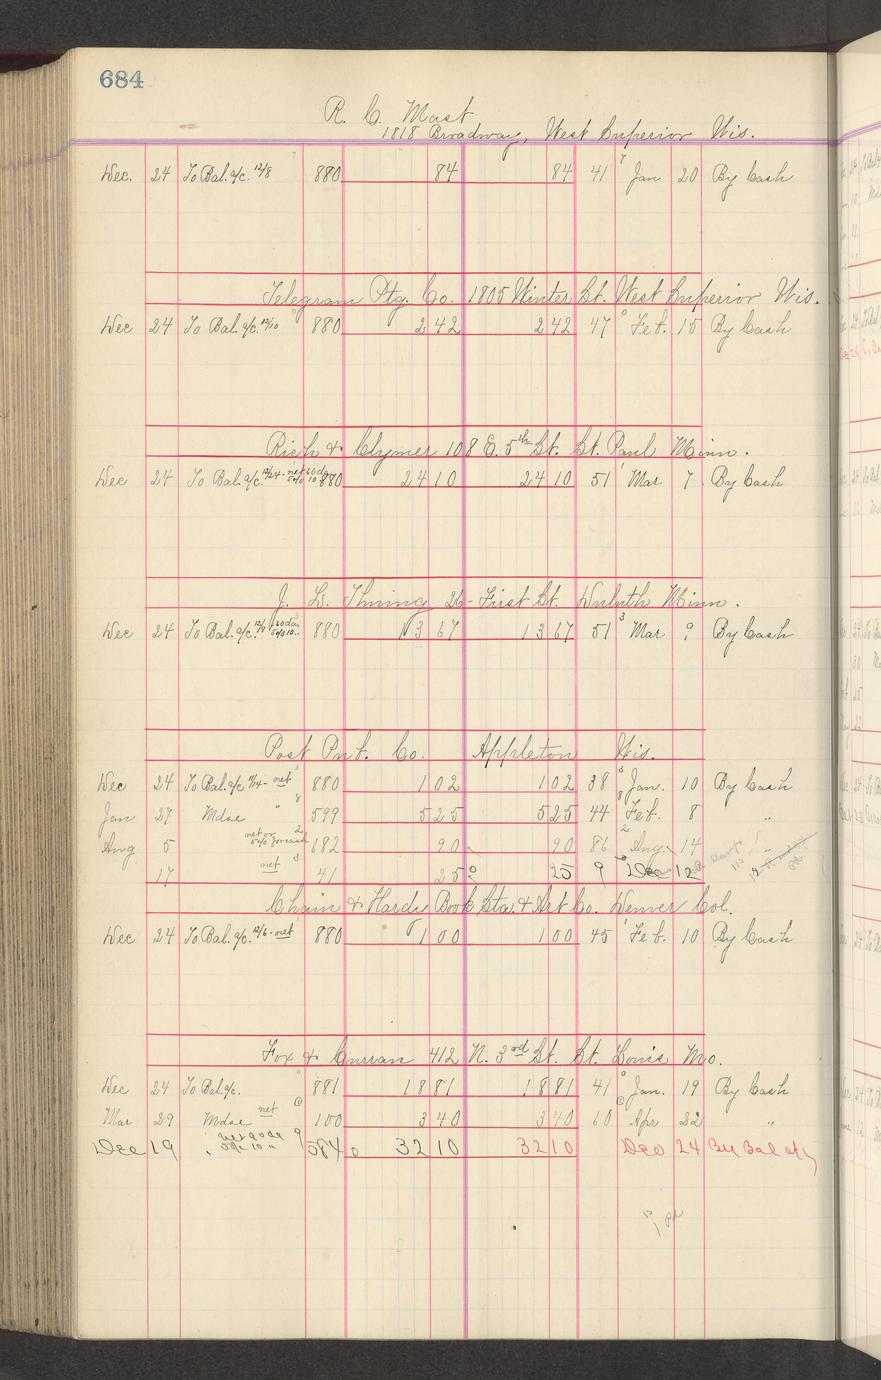 684
R. C. Mast
1818 Broadway, West Superior Wis.
Dec. 24 To Bal. a/c. 12/8 880 84 84 41 7 Jan 20 By Cash
Telegram Ptg. Co. 1805 Winter St. West Superior Wis.
Dec 24 To Bal. a/c. 12/10 880 2 42 2 42 47 Feb. 15 By Cash
Rich & Clymer 108 E. 5th St. St. Paul Minn.
Dec 24 To Bal. a/c. 12/24 - net 60 da 5% 10 880 24 10 24 10 51 1 Mar 7 By Cash
J. D. Thwing 26 - First St. Duluth Minn.
Dec 24 To Bal. a/c. 12/9 60 da 5% 10 .. 880 13 67 13 67 51 3 Mar 9 By Cash
Post Pub. Co. Appleton Wis.
Dec 24 To Bal. a/c 11/14 - net 880 1 02 1 02 38 3 Jan. 10 By Cash
Jan 27 Mdse " 8 599 5 25 5 25 44 8 Feb. 8 "
Aug 5 net or 5% for cash 2 682 90 90 86 2 Aug. 14 "
17 net 3 41 25 25 9 Dec 12 "
Chain & Hardy Book Sta. & Art Co. Denver Col.
Dec 24 To Bal. a/c. 12/6 - net 880 1 00 1 00 45 1 Feb. 10 By Cash
Fox & Curran 412 N. 3rd St. St. Louis Mo.
Dec 24 To Bal. a/c. 881 18 81 18 81 41 Jan. 19 By Cash
Mar 29 Mdse net 100 3 40 3 40 60 Apr 22 "
Dec 19 " net 90 da 5% 10 " 9 584 32 10 32 10 Dec 24 By Bal a/c
Pd